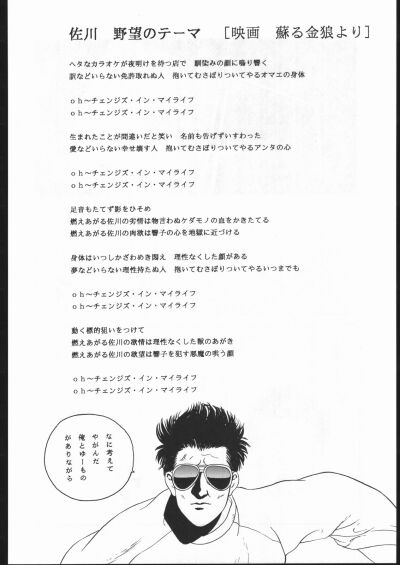 佐川　野望のテーマ　［映画　蘇る金狼より］
ヘタなカラオケが夜明けを待つ店で　馴染みの顔に鳴り響く
訳などいらない免許取れぬ人　抱いてむさぼりついてやるオマエの身体
ｏｈ～チェンジズ・イン・マイライフ
ｏｈ～チェンジズ・イン・マイライフ
生まれたことが間違いだと笑い　名前も告げずいすわった
愛などいらない幸せ壊す人　抱いてむさぼりついてやるアンタの心
ｏｈ～チェンジズ・イン・マイライフ
ｏｈ～チェンジズ・イン・マイライフ
足音もたてず影をひそめ
燃えあがる佐川の劣情は物言わぬケダモノの血をかきたてる
燃えあがる佐川の肉欲は響子の心を地獄に近づける
身体はいつしかざわめき悶え　理性なくした顔がある
夢などいらない理性持たぬ人　抱いてむさぼりついてやるいつまでも
ｏｈ～チェンジズ・イン・マイライフ
ｏｈ～チェンジズ・イン・マイライフ
動く標的狙いをつけて
燃えあがる佐川の欲情は理性なくした獣のあがき
燃えあがる佐川の欲望は響子を犯す悪魔の唄う顔
ｏｈ～チェンジズ・イン・マイライフ
ｏｈ～チェンジズ・イン・マイライフ
なに考えて
やがんだ
俺とゆーもの
がありながら